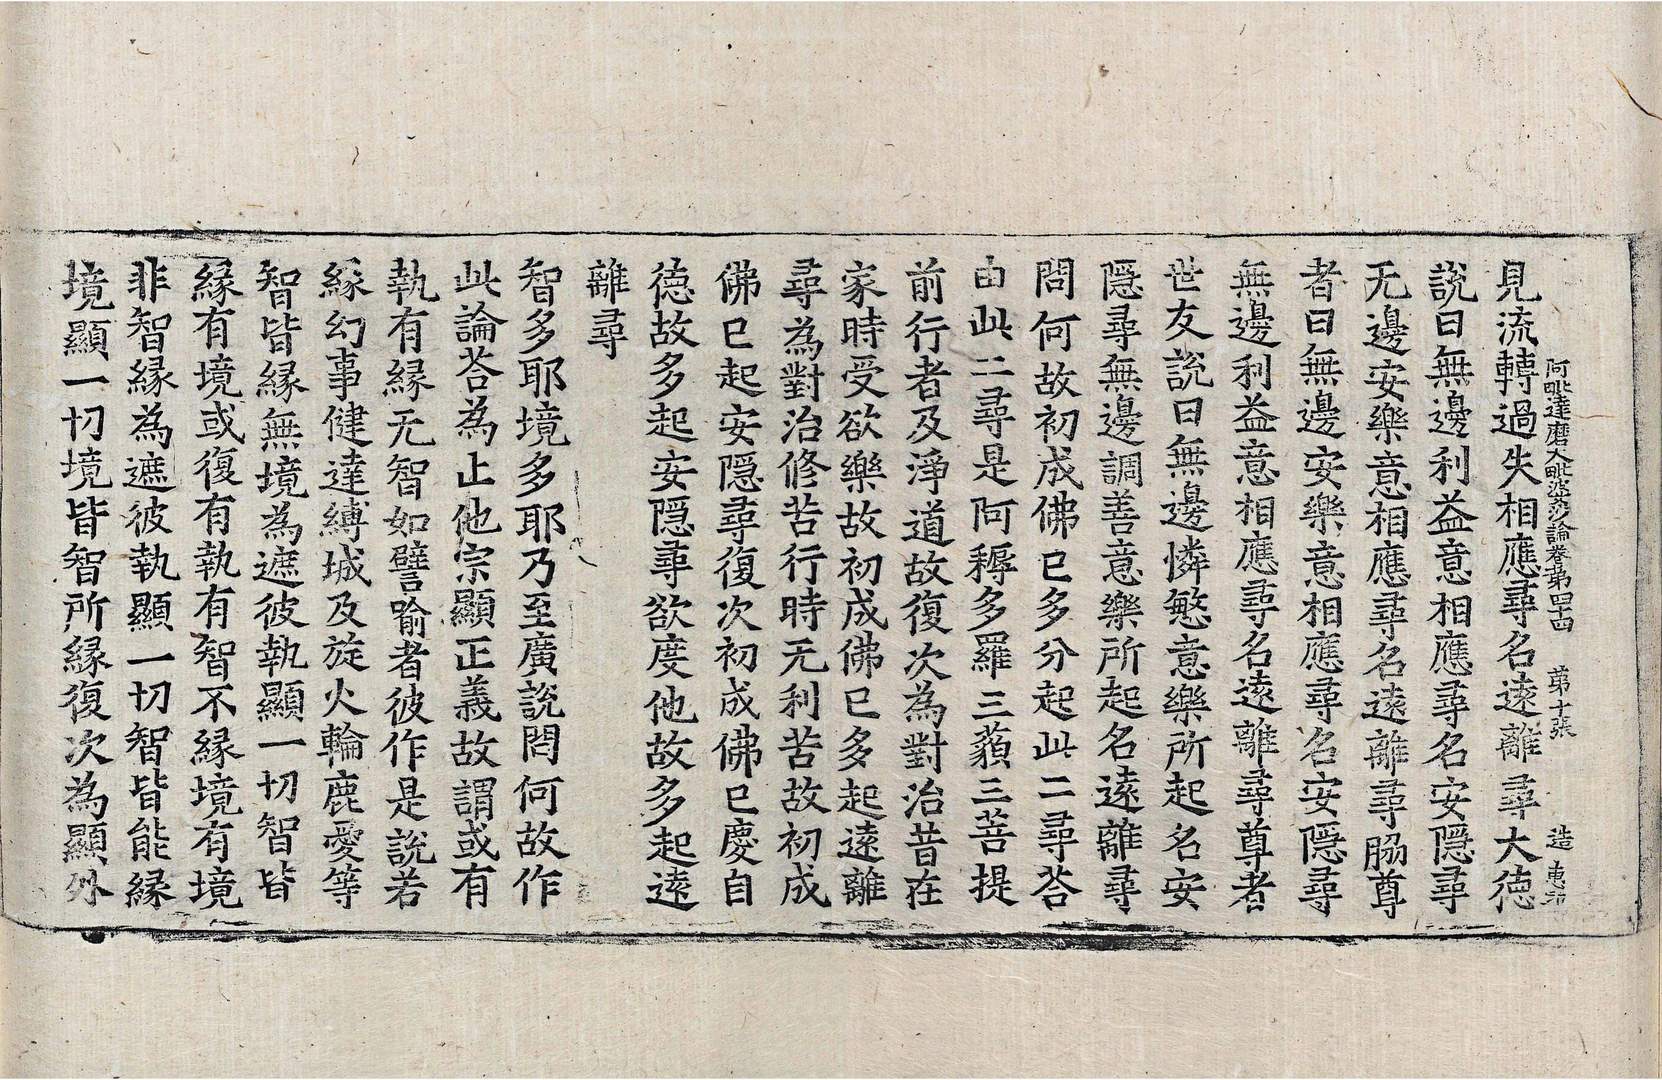 阿毗達磨大毗婆沙論卷第四十四　第十張　造
見流轉過失相應尋名遠離尋大德
說曰無邊利益意相應尋名安隱尋
无邊安樂意相應尋名遠離尋脇尊
者曰無邊安樂意相應尋名安隱尋
無邊利益意相應尋名遠離尋尊者
世友說曰無邊憐愍意樂所起名安
隱尋無邊調善意樂所起名遠離尋
問何故初成佛已多分起此二尋荅
由此二尋是阿耨多羅三藐三菩提
前行者及淨道故復次為對治昔在
家時受欲樂故初成佛已多起遠離
尋為對治修苦行時无利苦故初成
佛已起安隱尋復次初成佛已慶自
德故多起安隱尋欲度他故多起遠
離尋
智多耶境多耶乃至廣說問何故作
此論荅為止他宗顯正義故謂或有
執有緣无智如譬喻者彼作是說若
緣幻事健達縛城及旋火輪鹿愛等
智皆緣無境為遮彼執顯一切智皆
緣有境或復有執有智不緣境有境
非智緣為遮彼執顯一切智皆能緣
境顯一切境皆智所緣復次為顯外